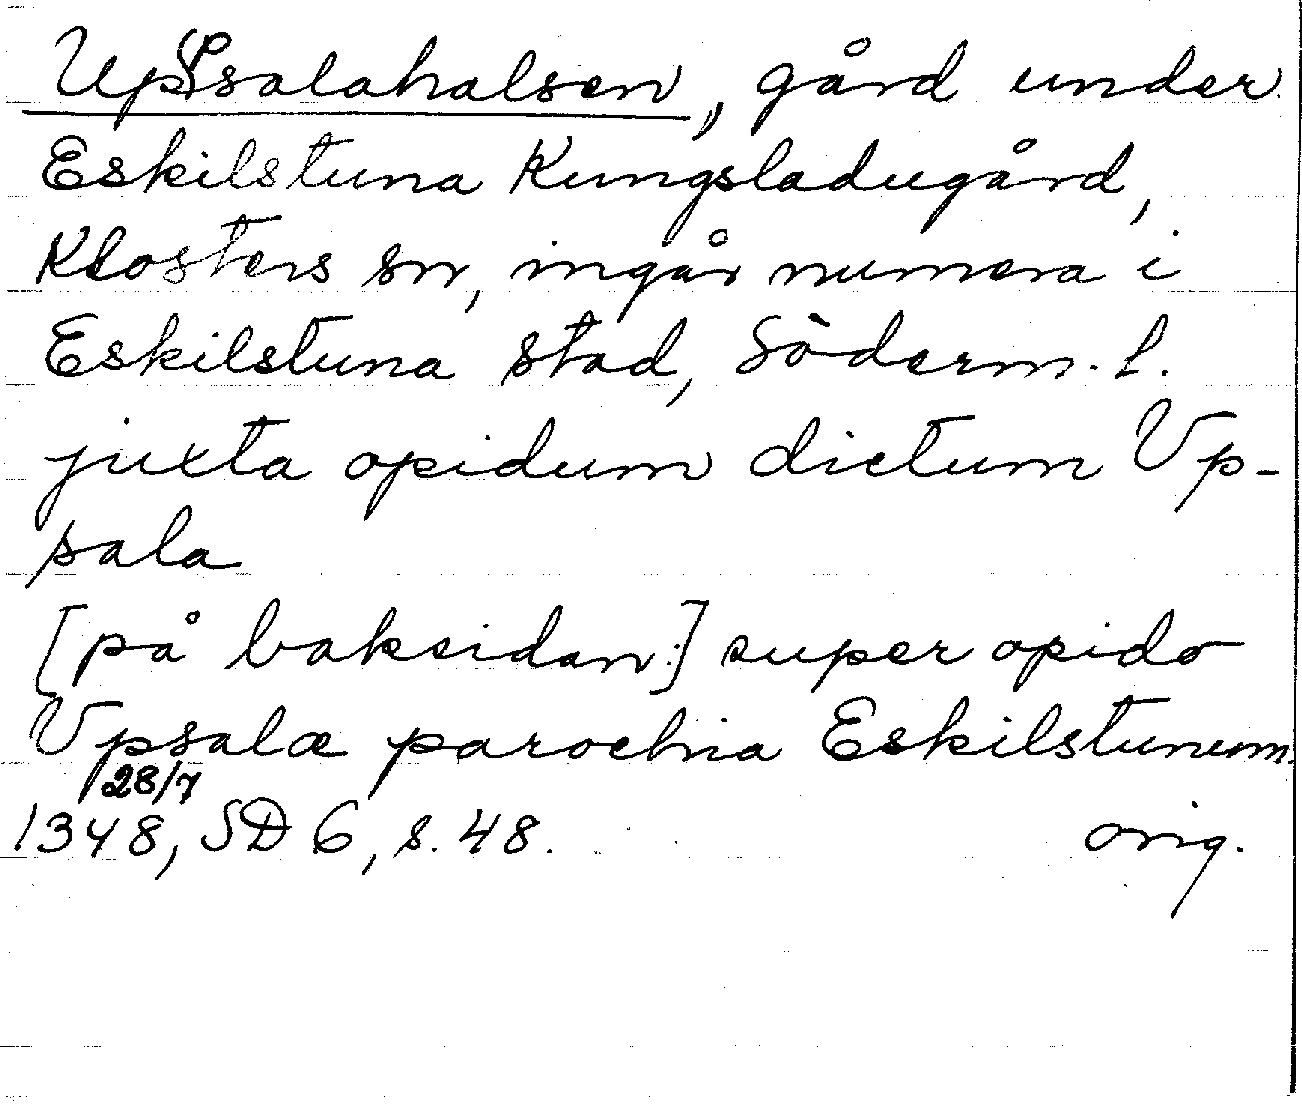 Uppsalahalsen, gård under
Eskilstuna Kungsladugård,
Klosters sn, ingår numera i
Eskilstuna stad, Söderm. l.
juxta opidum dictum Vp-
sala
[på baksidan:] super opido
Vpsalæ parochia Eskilstunum
28/7
1348, SD 6, s. 48. orig.